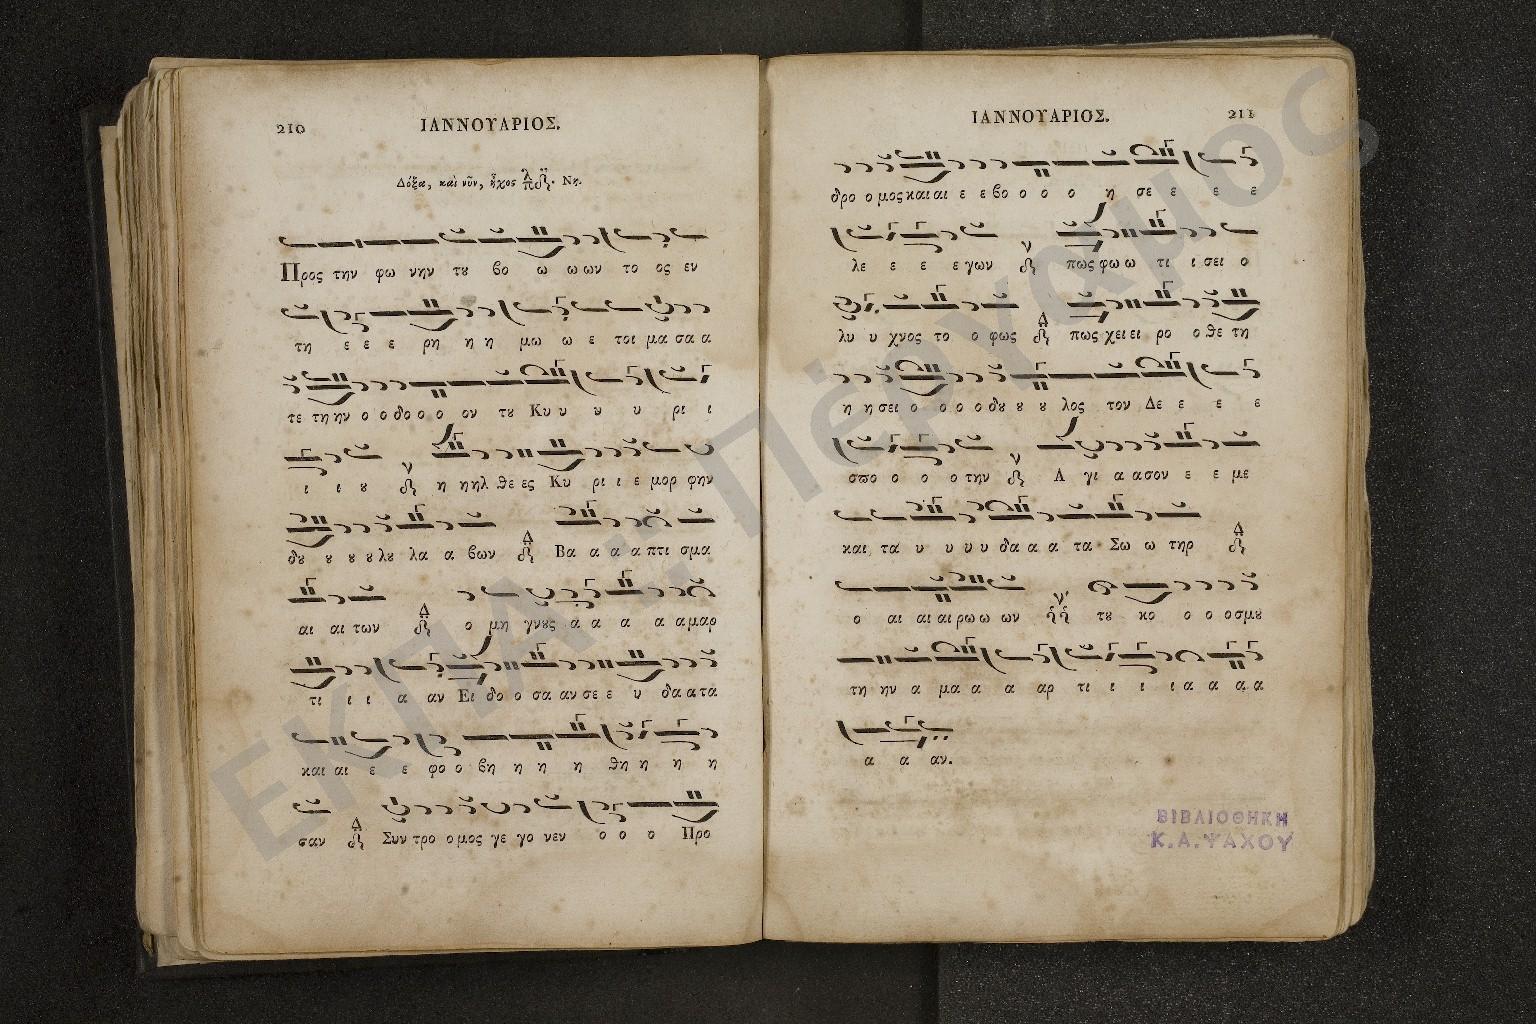 210 ΙΑΝΝΟΥΑΡΙΟΣ.
Δόξα, καὶ νῦν, ἦχος Νη.
Προς την φω νην τȣ βο ω ω ων το ος εν
τη ε ε ε ρη η η μω ω ε τοι μα σα α
τε τη ην ο ο δο ο ο ον τȣ Κυ υ υ υ ρι ι
ι ι ȣ η η ηλ θε ες Κυ ρι ι ε μορ φην
δȣ ȣ ȣ ȣ λȣ λα α βων Βα α α α πτι σμα
αι αι των ο μη γνȣς α α α α α μαρ
τι ι ι α αν Ει δο ο σα αν σε ε υ δα α τα
και αι ε ε φο ο βη η η η θη η η η
σαν Συν τρο ο μος γε γο νεν ο ο ο Προ
ΙΑΝΝΟΥΑΡΙΟΣ. 211
δρο ο μος και αι ε ε βο ο ο ο η σε ε ε ε
λε ε ε ε γων πως φω ω τι ι σει ο
λυ υ χνος το ο φως πως χει ει ρο ο θε τη
η η σει ο ο ο ο δȣ ȣ ȣ λος τον Δε ε ε ε
σπο ο ο ο την Α γι α α σον ε ε με
και τα υ υ υ υ δα α α τα Σω ω τηρ
ο αι αι αι ρω ω ων τȣ κο ο ο ο σμȣ
τη ην α μα α α αρ τι ι ι ι α α α α
α α αν.
ΒΙΒΛΙΟΘΗΚΗ
Κ.Α.ΨΑΧΟΥ